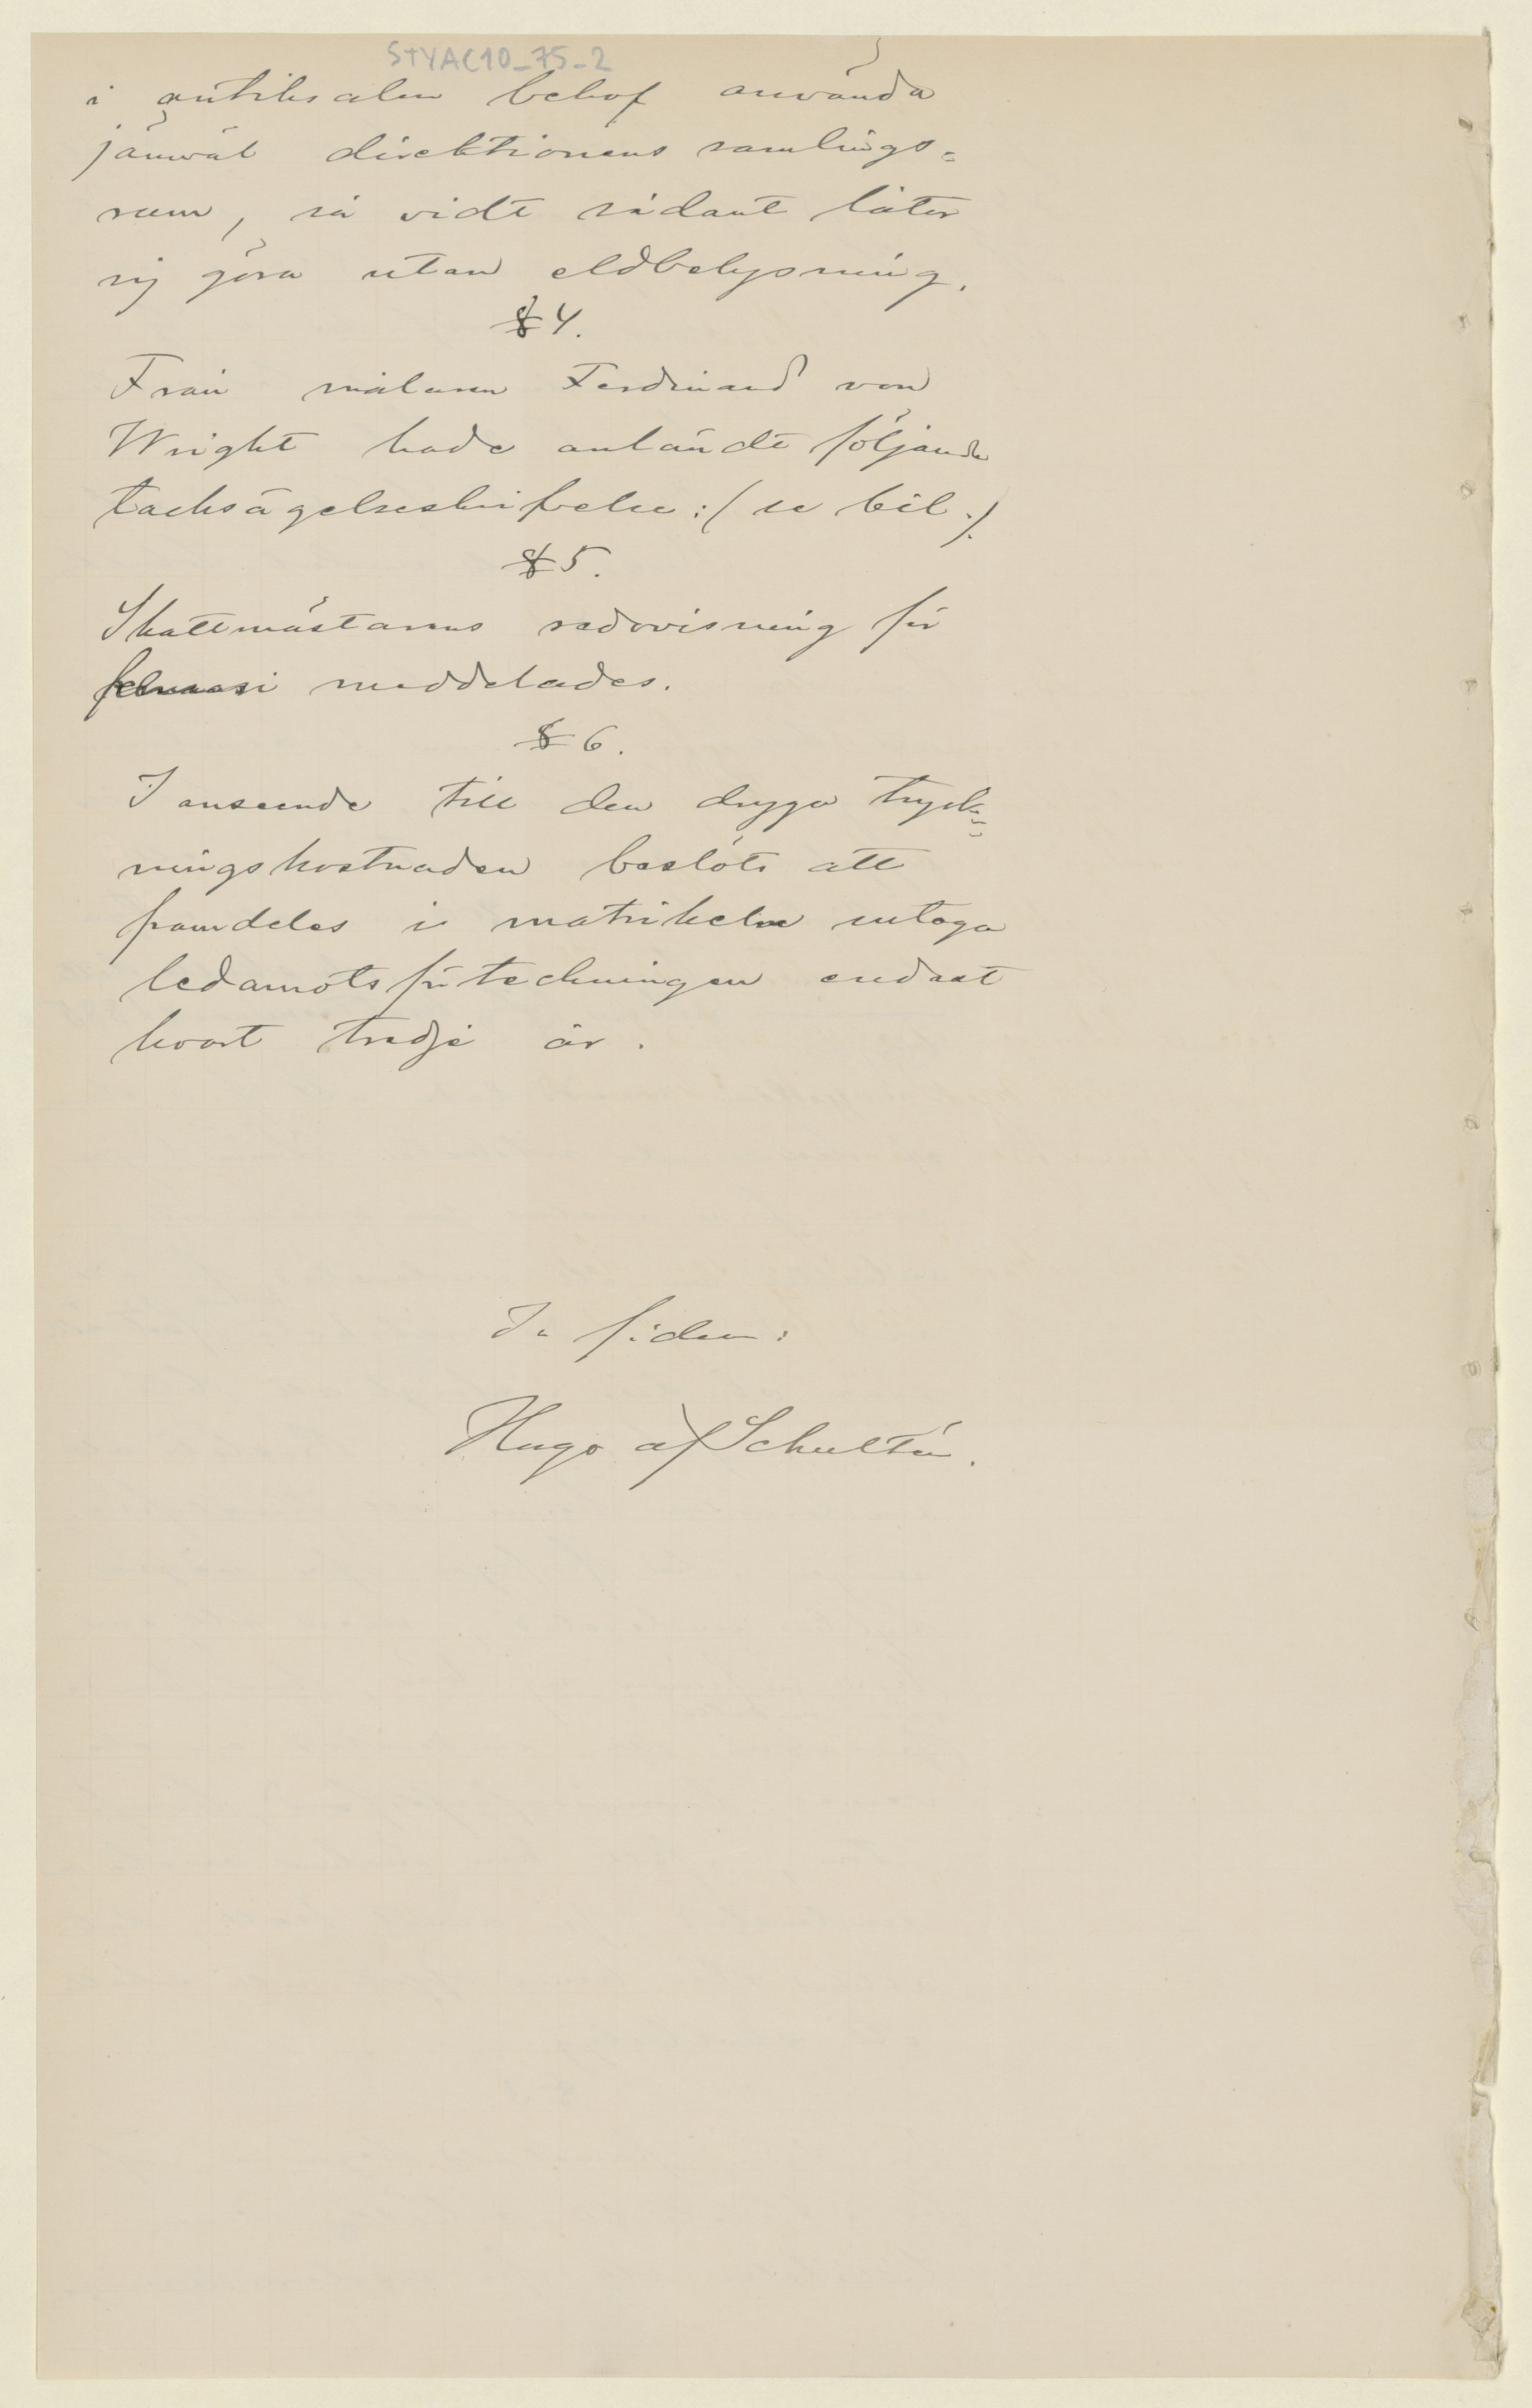 STYAC10_75-2
i antiksalen behof använda
jämväl direktionens samlings=
rum, så vidt sådant låter
sig göra utan eldbelysning.
§ 4.
Från målaren Ferdinand von
Wright hade anländt följande
tacksägelseskrifvelse: (se bil.).
§ 5.
Skattmästarens redovisning för
februari meddelades.
§ 6.
I anseende till den dryga tryck=
ningskostnaden beslöts att
framdeles i matrikeln intaga
ledamotsförteckningen endast
hvart tredje år.
In fidem:
Hugo af Schultén.